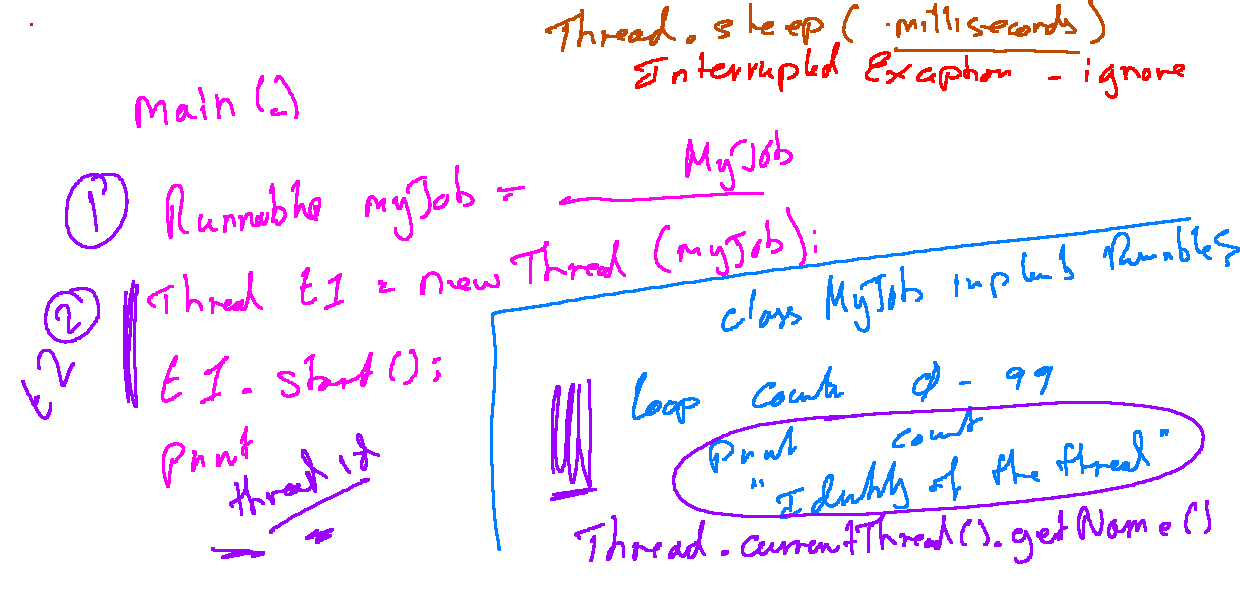 Thread.sleep( milliseconds)
Interrupted Exception - ignore
Main(-)
① Runnable myJob = MyJob
② Thread t1 = new Thread (myJob);
t2
t1.start();
print
thread id
class MyJob implents Runnables
loop count 0 - 99
Print count
"Identity of the thread"
Thread.currentThread().getName()